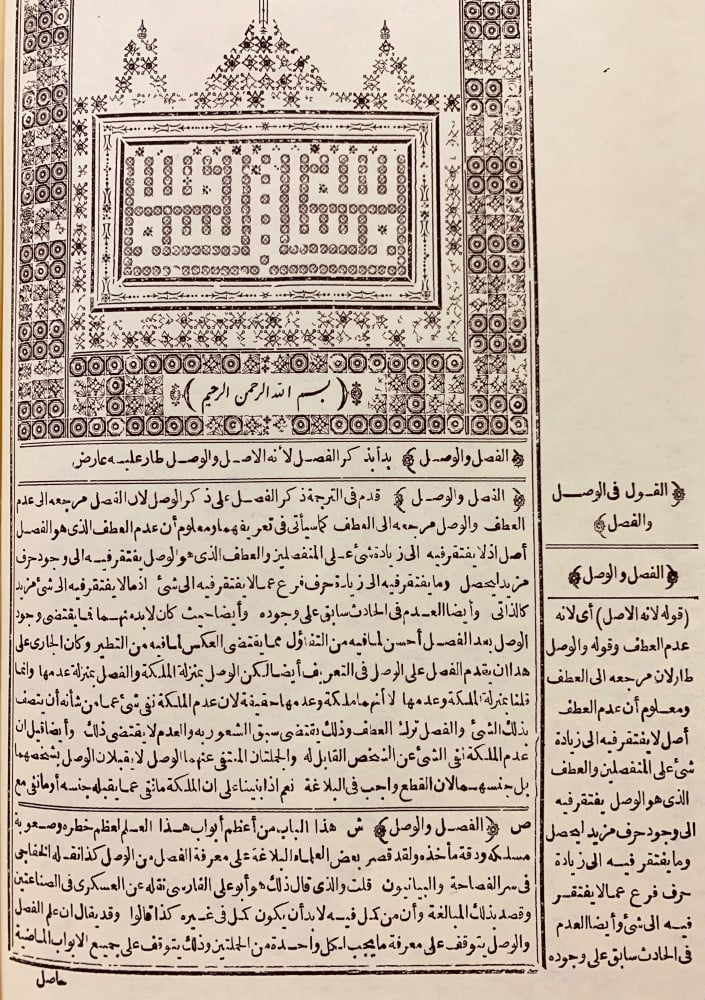 ﴿ بسم الله الرحمن الرحيم ﴾
﴿ الفصل والوصل ﴾ بدأ بذكر الفصل لأنه الاصل والوصل طار عليه عارض
﴿ الفصل والوصل ﴾ قدم في الترجمة ذكر الفصل على ذكر الوصل لان الفصل مرجعه الى عدم
العطف والوصل مرجعه الى العطف كما سيأتى فى تعريفهما ومعلوم أن عدم العطف الذى هو الفصل
أصل اذ لا يفتقر فيه الى زيادة شئ على المنفصلين والعطف الذى هو الوصل يفتقر فيه الى وجود حرف
مزيد ليحصل وما يفتقر فيه الى زيادة حرف فرع عما لا يفتقر فيه الى شئ اذ ما لا يفتقر فيه الى شئ مزيد
كالذاتى وأيضا العدم فى الحادث سابق على وجوده وأيضا حيث كان لا بد منهما فما يقتضى وجود
الوصل بعد الفصل أحسن لما فيه من التفاؤل مما يقتضى العكس لما فيه من التطير وكان الجارى على
هذا ان يقدم الفصل على الوصل فى التعريف أيضا لكن الوصل بمنزلة الملكة والفصل بمنزلة عدمها وانما
قلنا بمنزلة الملكة وعدمها لا أنهما ملكة وعدمها حقيقة لان عدم الملكة نفى شئ عما من شأنه أن يتصف
بذلك الشئ والفصل ترك العطف وذلك يقتضى سبق الشعور به والعدم لا يقتضى ذلك وأيضا قيل ان
عدم الملكة نفى الشئ عن الشخص القابل له والجملتان المنتفى عنهما الوصل لا يقبلان الوصل بشخصهما
بل جنسهما لان القطع واجب فى البلاغة نعم اذا بنينا على ان الملكة ما نفى عما يقبله جنسه أو ما نفى مع
ص ﴿ الفصل والوصل ﴾ ش هذا الباب من أعظم أبواب هذا العلم لعظم خطره وصعوبة
مسلكه ودقة مأخذه ولقد قصر بعض العلماء البلاغة على معرفة الفصل من الوصل كذا نقله الخفاجى
فى سر الفصاحة والبيانيون قلت والذى قال ذلك هو أبو على الفارسى نقله عن العسكرى فى الصناعتين
وقصد بذلك المبالغة وأن من كمل فيه لا بد أن يكون كمل فى غيره كذا قالوا وقد يقال ان علم الفصل
والوصل يتوقف على معرفة ما يجب لكل واحدة من الجملتين وذلك يتوقف على جميع الابواب الماضية
حاصل
﴿ القول فى الوصل
والفصل ﴾
﴿ الفصل والوصل ﴾
(قوله لانه الاصل) أى لانه
عدم العطف وقوله والوصل
طار لان مرجعه الى العطف
ومعلوم أن عدم العطف
أصل لا يفتقر فيه الى زيادة
شئ على المنفصلين والعطف
الذى هو الوصل يفتقر فيه
الى وجود حرف مزيد ليحصل
وما يفتقر فيه الى زيادة
حرف فرع عما لا يفتقر
فيه الى شئ وأيضا العدم
فى الحادث سابق على وجوده